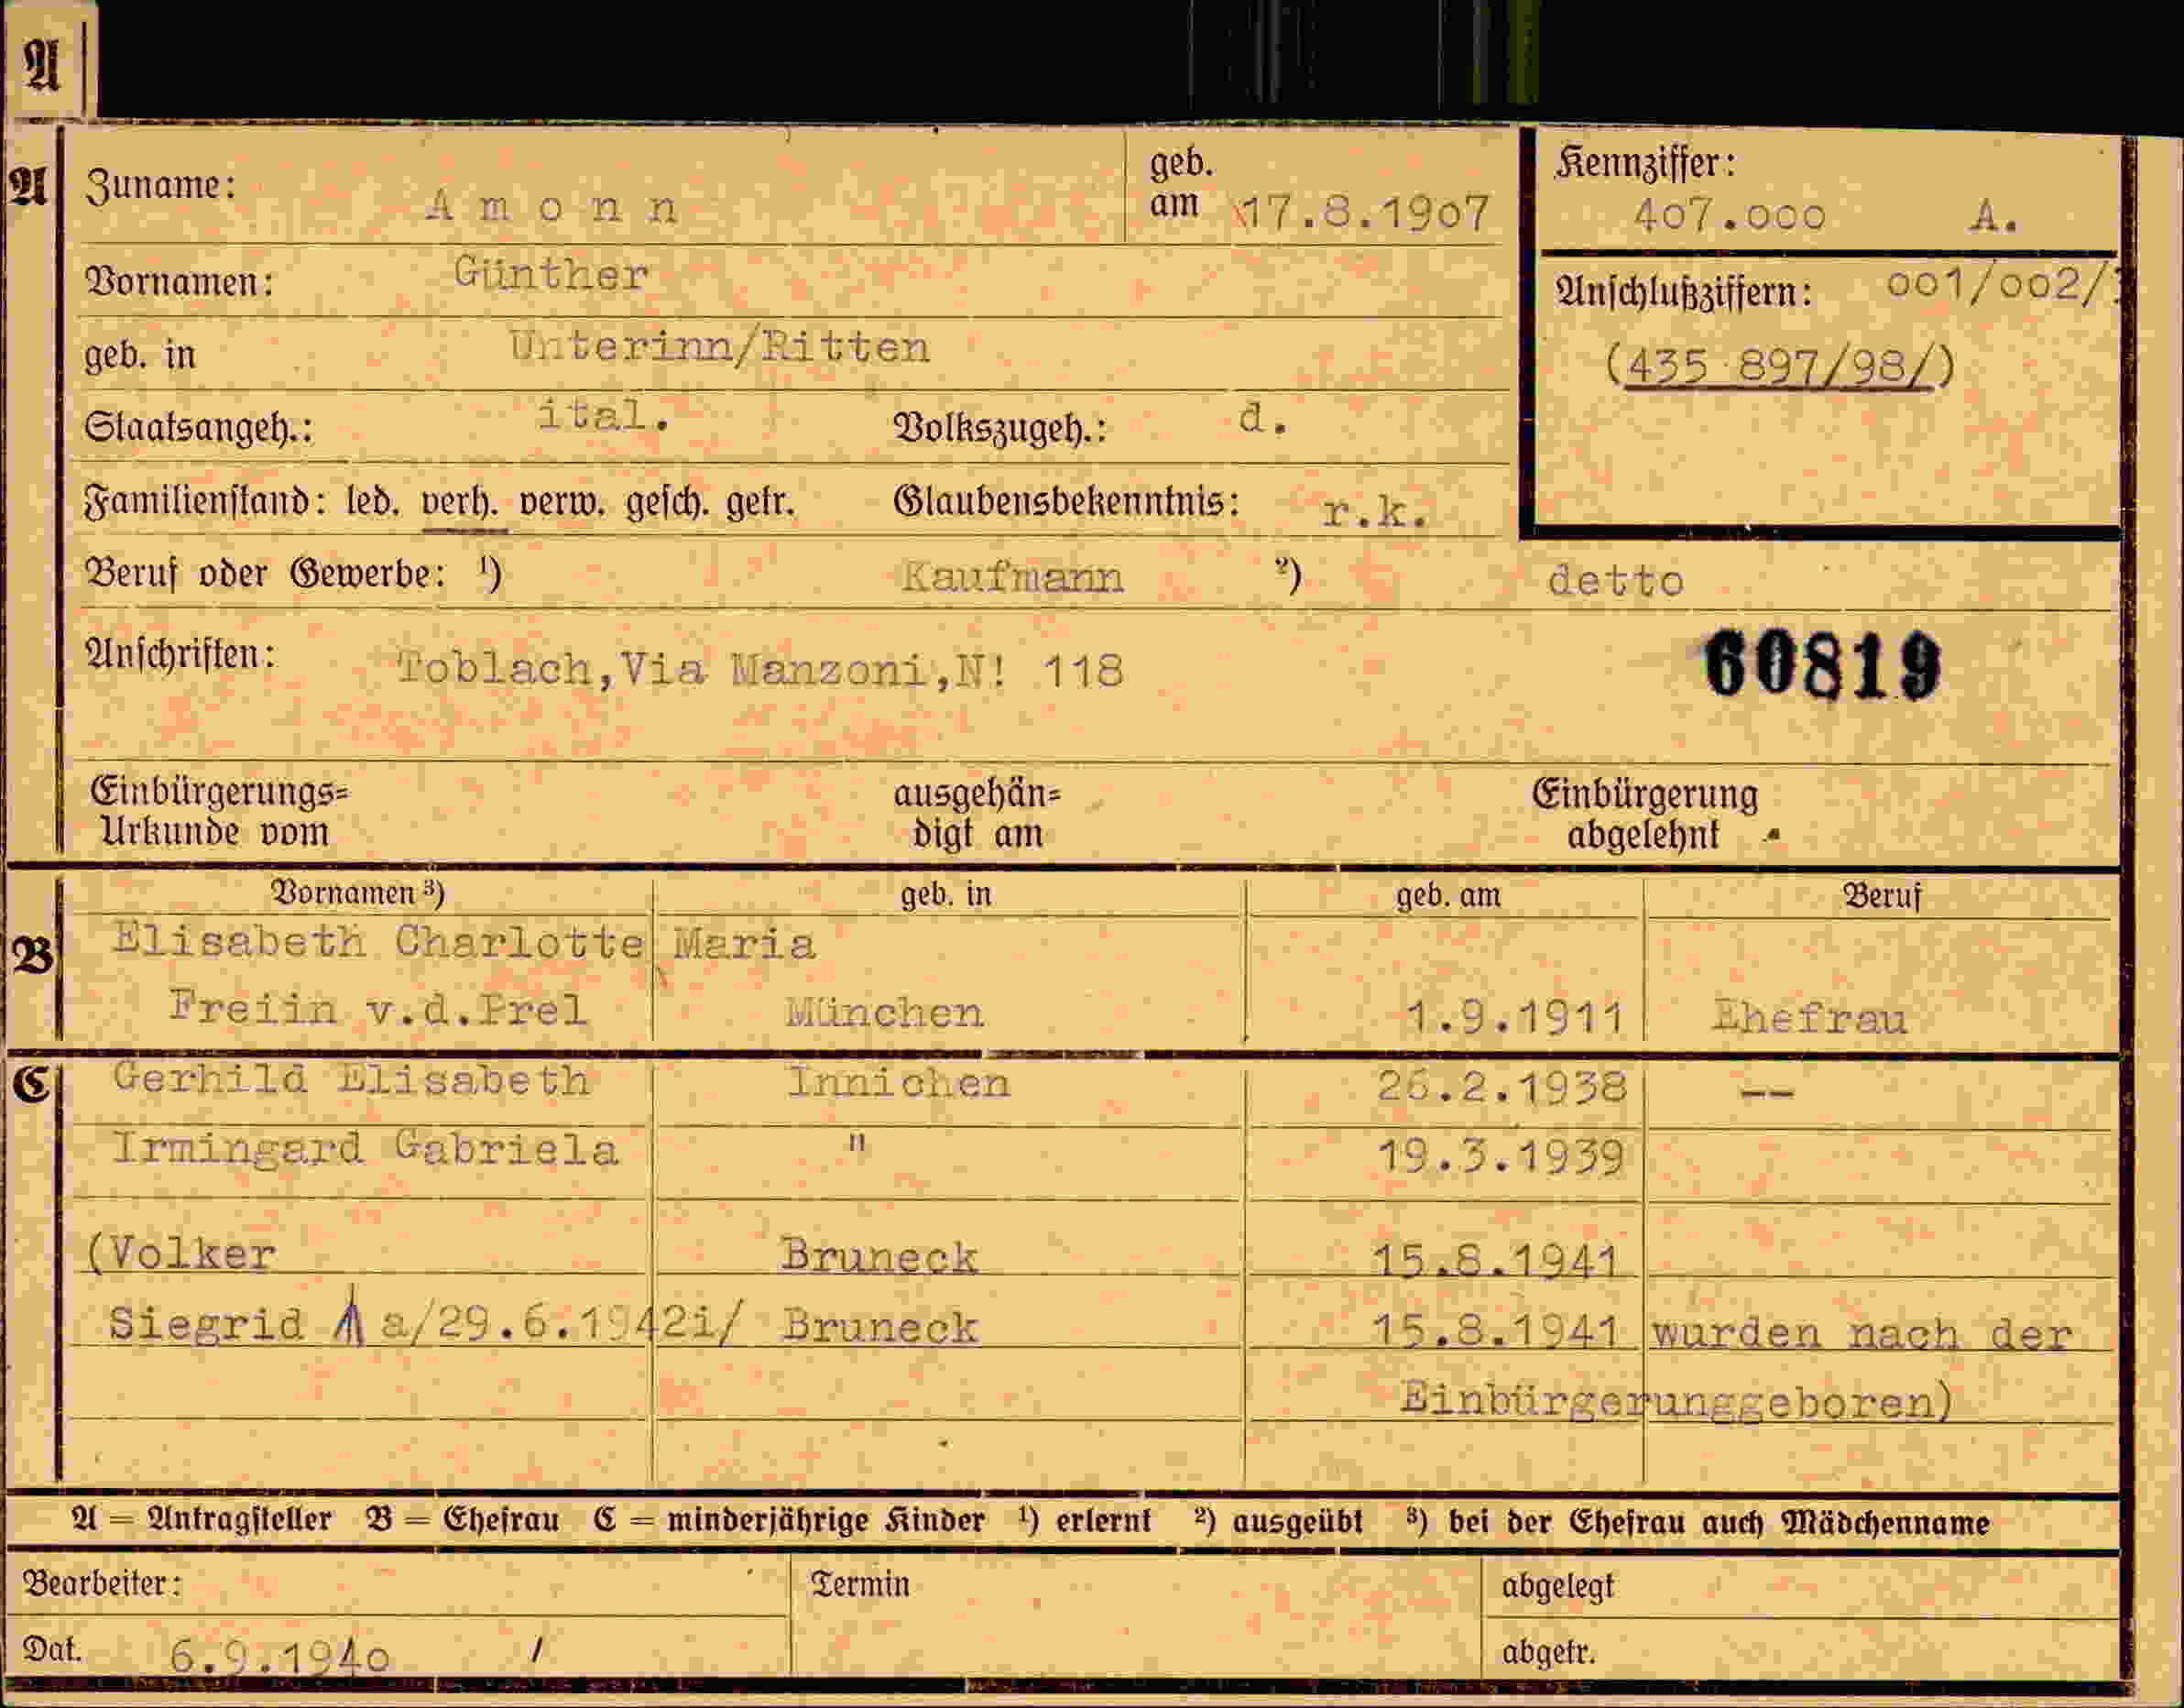 A
A Zuname: Amonn geb. am 17.8.1907 Kennziffer: 407.000 A.
Vornamen: Günther Anschlußziffern: 001/002/
geb. in Unterinn/Ritten (435 897/98/)
Staatsangeh.: ital. Volkszugeh.: d.
Familienstand: led. verh. verw. gesch. getr. Glaubensbekenntnis: r.k.
Beruf oder Gewerbe: ¹) Kaufmann ²) detto
Anschriften: Toblach,Via Manzoni,N! 118 60819
Einbürgerungs= ausgehän= Einbürgerung
Urkunde vom digt am abgelehnt
Vornamen ³) geb. in geb. am Beruf
B Elisabeth Charlotte Maria
Freiin v.d.Prel München 1.9.1911 Ehefrau
C Gerhild Elisabeth Innichen 26.2.1938 --
Irmingard Gabriela " 19.3.1939
(Volker Bruneck 15.8.1941
Siegrid a/29.6.1942i/ Bruneck 15.8.1941 wurden nach der
Einbürgerunggeboren)
A = Antragsteller B = Ehefrau C = minderjährige Kinder ¹) erlernt ²) ausgeübt ³) bei der Ehefrau auch Mädchenname
Bearbeiter: Termin abgelegt
Dat. 6.9.1940 / abgetr.